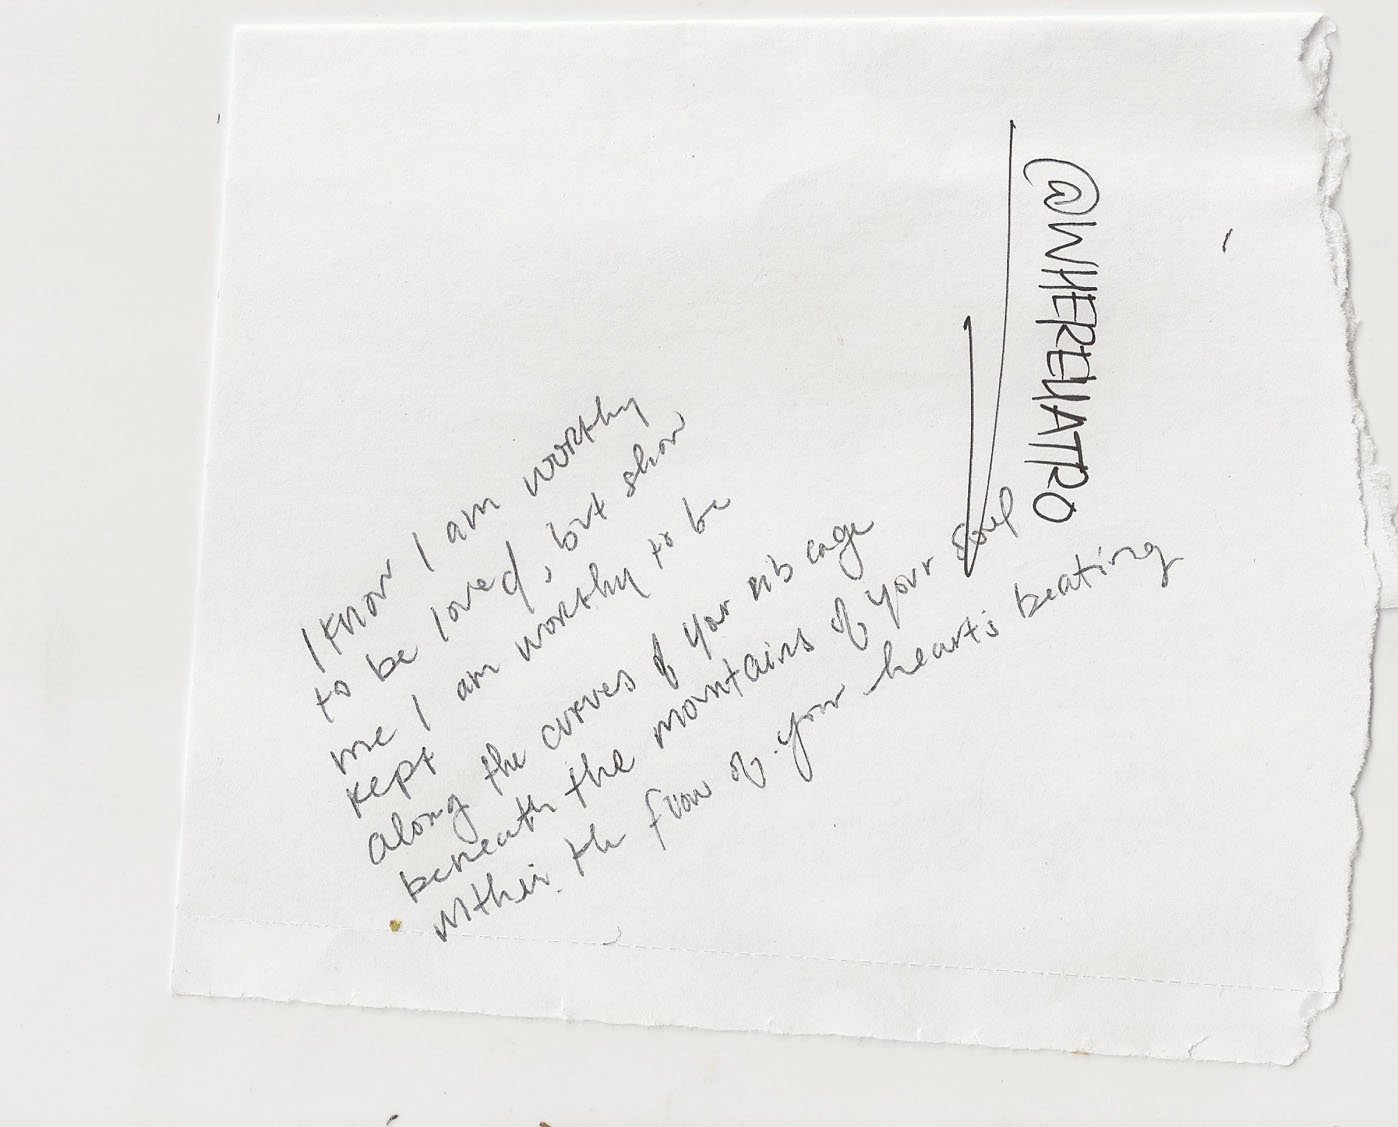 I know I am worthy
to be loved, but show
me I am worthy to be
kept
along the curves of your rib cage
beneath the mountains of your soul
within the flow of your heart's beating
@WHEREUATRO